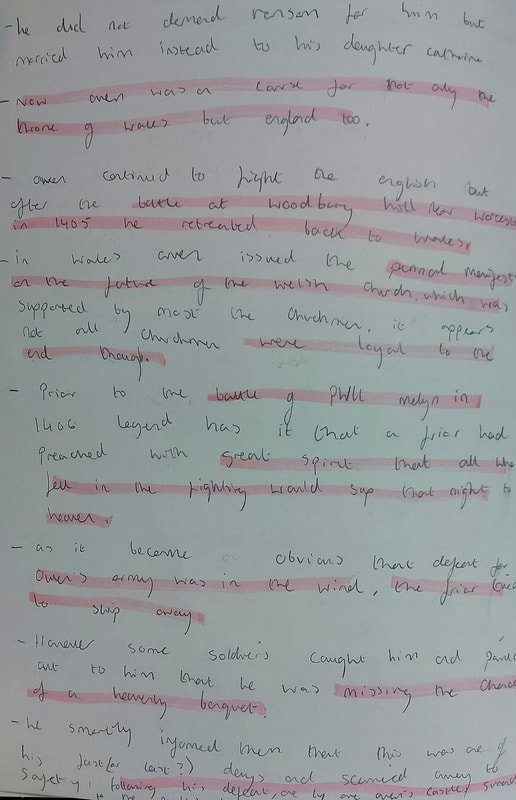 - he did not demand ransom for him but
married him instead to his daughter catherine
- Now owen was a cause for not only the
throne of wales but england too.
- owen continued to fight the english but
after the battle at woodbury hill near worcester
in 1405 he retreated back to wales.
- in wales owen issued the pennal manifest
on the future of the welsh church. which was
supported by most the churchmen. it appears
not all churchmen were loyal to the
end though.
- Prior to the battle of PWll melyn in
1406 legend has it that a friar had
preached with great spirit that all who
fell in the fighting would sup that night in
heaven.
- as it became obvious that defeat for
Owen's army was in the wind, the friar tried
to slip away.
- However some soldiers caught him and
out to him that he was missing the chance
of a heavenly banquet.
- he smartly informed them that this was one of
his fast (or last?) days and scurried away to
safety. following his defeat, one by one owen's castles
to the